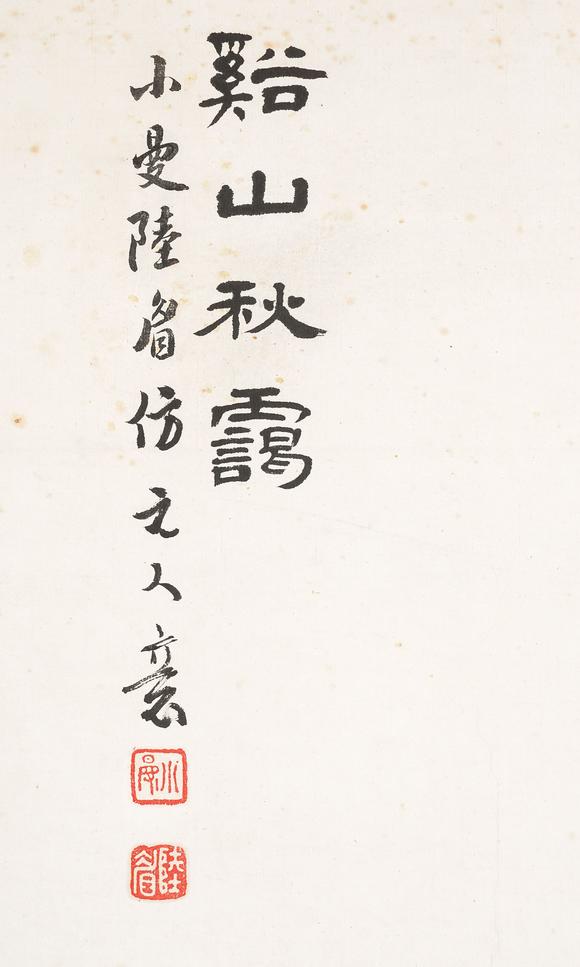 谿山秋靄
小曼陸眉仿元人意
小曼
陸眉